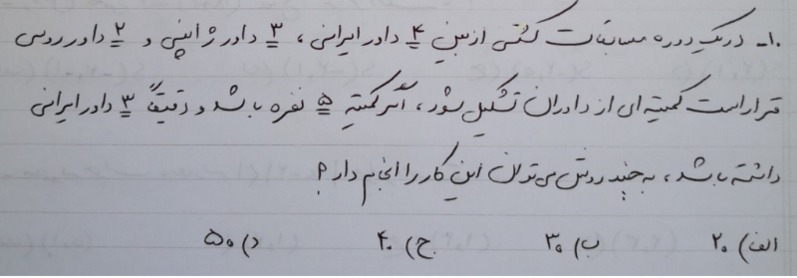 ۱۰- در یک دوره مسابقات کشتی از بین ۴ داور ایرانی، ۳ داور ژاپنی و ۲ داور روسی
قرار است کمیته ای از داوران تشکیل شود، اگر کمیته ۵ نفره باشد و دقیقاً ۳ داور ایرانی
داشته باشد، به چند روش می توان این کار را انجام داد؟
الف) ۲۰ ب) ۳۰ ج) ۴۰ د) ۵۰